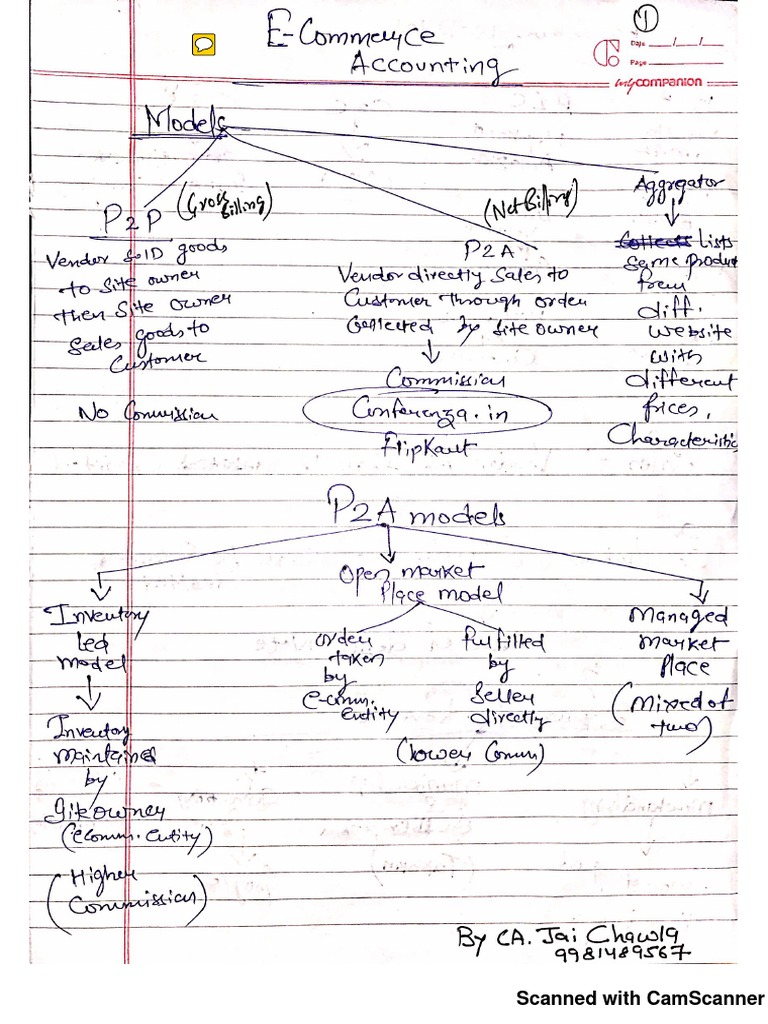 E-Commerce
Accounting
1
Date
Page
mycompanion
Models
P2P (Gross Billing)
Vendor sold goods
to site owner
then site owner
sales goods to
Customer
No Commission
(Net Billing)
P2A
Vendor directly sales to
Customer through order
Collected by site owner
Commission
Conferenza.in
Flipkart
Aggregator
Collects Lists
Same product
from
diff.
website
with
different
prices,
Characteristic
P2A models
Inventory
Led
model
Inventory
maintained
by
Site owner
(eComm. entity)
(Higher
Commission)
Open market
Place model
order
taken
by
e-comm.
entity
fulfilled
by
Seller
directly
(lower Comm)
Managed
market
Place
(Mixed of
two)
By CA. Jai Chawla
9981489567
Scanned with CamScanner